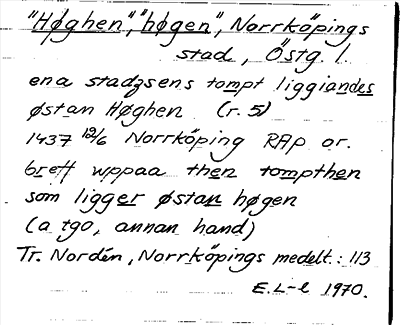 "Høghen", "høgen", Norrköpings
stad, Östg. l.
ena stadzsens tompt liggiandes
østan Høghen (r. 5)
1437 12/6 Norrköping RAp or.
breff uppaa then tompthen
som ligger østan høgen
(a tgo, annan hand)
Tr. Nordén, Norrköpings medelt.: 113
E.L-l 1970.